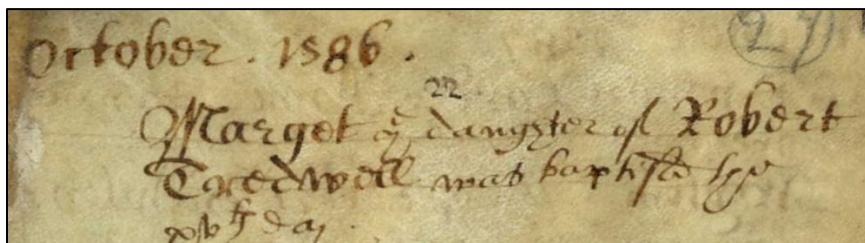 October . 1586 .
27
22
Marget ye daughter of Robert
Tredwell was baptised the
xvth day .